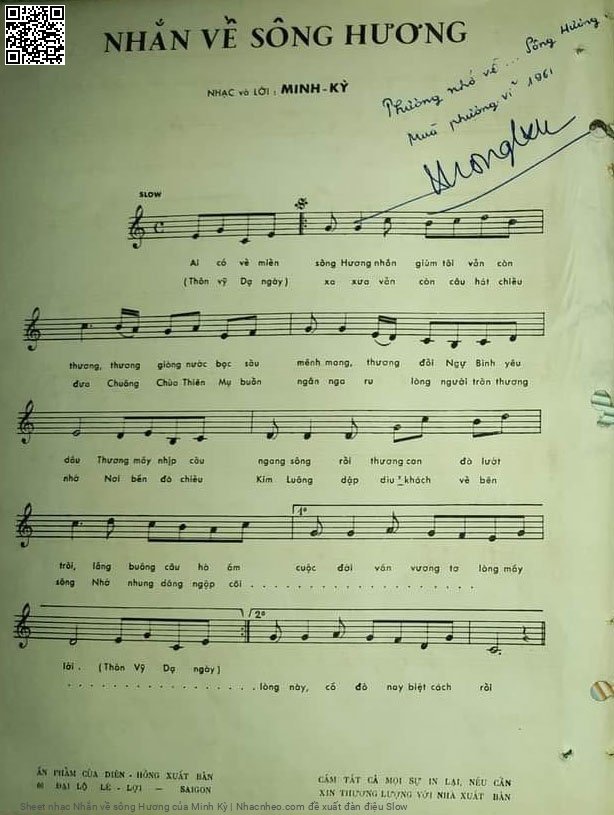 NHẮN VỀ SÔNG HƯƠNG
NHẠC và LỜI : MINH-KỲ
Phương nhớ về ... Sông Hương
Mùa phượng vĩ 1961
SLOW
Ai có về miền sông Hương nhắn giùm tôi vẫn còn
(Thôn vỹ Dạ ngày) xa xưa vẫn còn câu hát chiều
thương, thương giòng nước bạc sầu mênh mang, thương đồi Ngự Bình yêu
đưa Chuông Chùa Thiên Mụ buồn ngân nga ru lòng người trần thương
dấu Thương mấy nhịp cầu ngang sông rồi thương con đò lướt
nhớ Nơi bến đò chiều Kim Luông dập dìu khách về bên
trôi, lắng buông câu hò ấm cuộc đời vấn vương tơ lòng mấy
sông Nhớ nhung dâng ngập cõi . . . . . . . . . . . . . . .
1º
lời . (Thôn Vỹ Dạ ngày)
. . . . . . . . . . . . . . . . . lòng này, cố đô nay biệt cách rồi
2º
ẤN PHẨM CỦA DIÊN - HỒNG XUẤT BẢN
ĐẠI LỘ LÊ - LỢI — SAIGON
CẤM TẤT CẢ MỌI SỰ IN LẠI, NẾU CẦN
XIN THƯƠNG LƯỢNG VỚI NHÀ XUẤT BẢN
Sheet nhạc Nhắn về sông Hương của Minh Kỳ | Nhacnheo.com đề xuất đàn điệu Slow